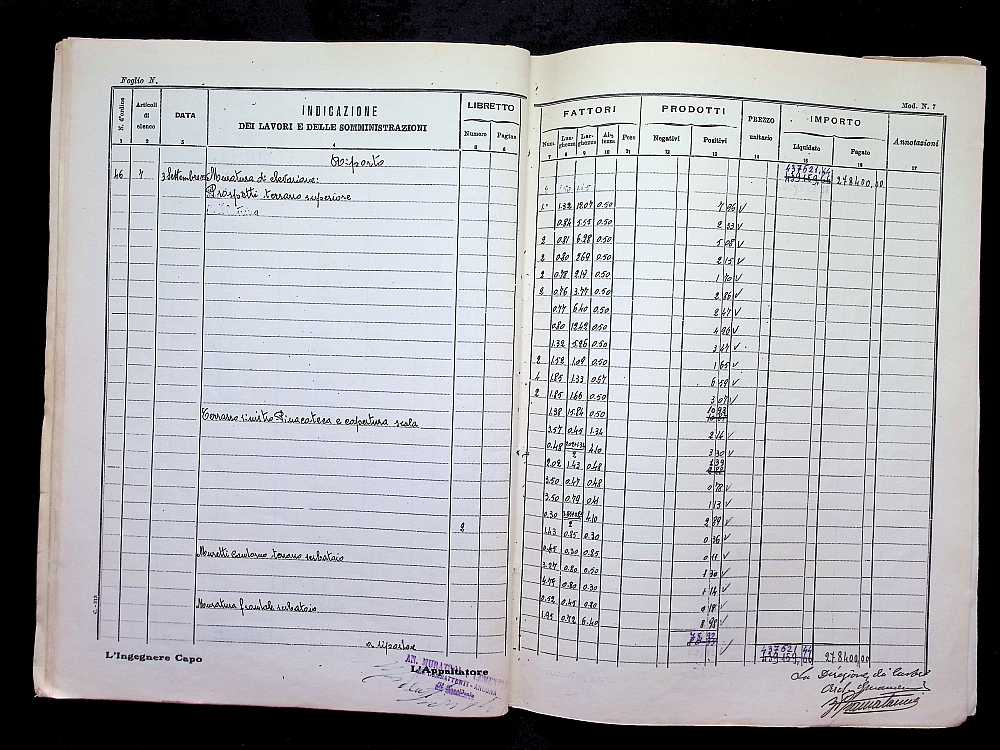 Foglio N.
Mod. N. 7
N. d'ordine Articoli di elenco DATA INDICAZIONE DEI LAVORI E DELLE SOMMINISTRAZIONI LIBRETTO Numero Pagina FATTORI Num. Lunghezze Larghezze Altezza Peso PRODOTTI Negativi Positivi PREZZO unitario IMPORTO Liquidato Pagato Annotazioni
1 2 3 4 5 6 7 8 9 10 11 12 13 14 15 16 17
Riporto 437521.44 278400.00
46 7 3 Settembre Muratura di elevazione:
Prospetti terrano superiore
1.32 12.07 0.50 7 96 v
0.84 5.55 0.50 2 33 v
2 0.81 6.28 0.50 5 08 v
2 0.80 2.69 0.50 2 15 v
2 0.78 2.17 0.50 1 70 v
2 0.76 3.77 0.50 2 86 v
0.77 6.40 0.50 2 47 v
0.80 12.42 0.50 4 96 v
1.32 5.26 0.50 3 47 v
2 1.52 1.09 0.50 1 65 v
4 1.85 1.33 0.67 6 59 v
2 1.85 1.66 0.50 3 07 v
1.38 15.84 0.50 10 93
Terrazzo sinistro Pinacoteca e copertura scala 3.57 0.45 1.34 2 14 v
0.48 2 4.10 3 30 v
2.02 1.43 0.48 1 39
3.50 0.47 0.48 0 78 v
3.50 0.79 0.41 1 13 v
0.30 2 4.10 2 89 v
2 1.43 0.85 0.30 0 36 v
0.45 0.30 0.85 0 11 v
Muretti terrano serbatoio 3.27 0.80 0.50 1 30 v
4.75 0.80 0.30 1 14 v
0.52 0.45 0.80 0 18 v
Muratura frontale serbatoio 1.95 0.72 6.40 8 98 v
a riportare 437521 44 278400.00
L'Ingegnere Capo
L'Appaltatore
La Direzione dei lavori
C. - 313